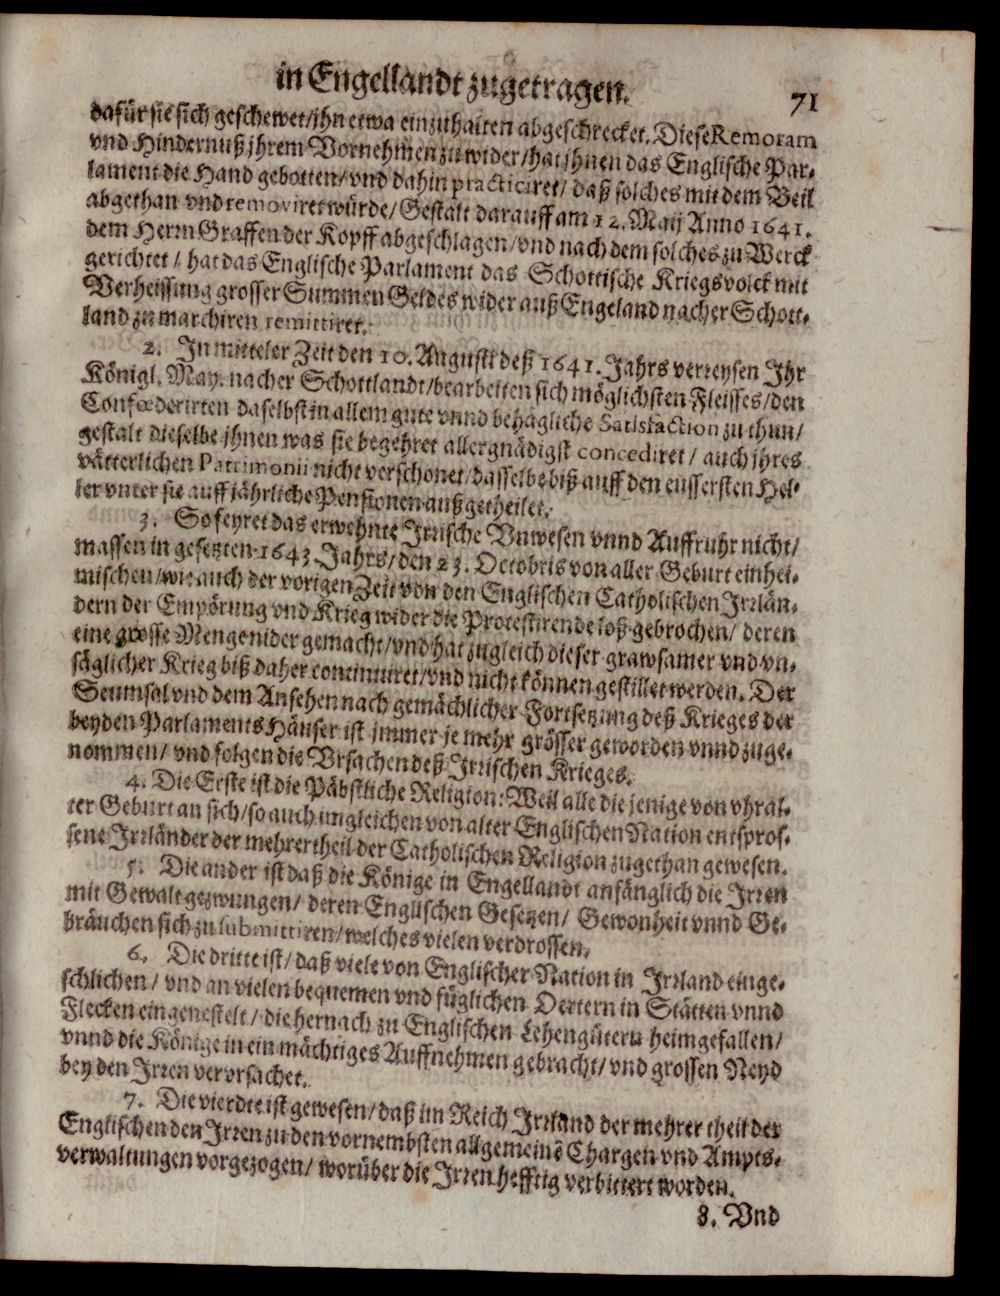 in Engellandt zugetragen.
71
dafür sie sich geschewet/ihn etwa einzuhalten abgeschrecket. Diese Remoram
vnd Hindernuß jhrem Vornehmen zu wider/hat jhnen das Englische Par-
lament die Hand gebotten/vnd dahin practiciret/ daß solches mit dem Beil
abgethan vnd removiret würde/Gestalt darauff am 12. Maij Anno 1641.
dem Herrn Graffen der Kopff abgeschlagen/vnd nach dem solches zu Werck
gerichtet/ hat das Englische Parlament das Schottische Kriegsvolck mit
Verheissung grosser Summen Geldes wider auß Engeland nacher Schott-
land zu marchiren remittiret.
2. In mitteler Zeit den 10. Augusti deß 1641. Jahrs verreysen Ihr
Königl. May. nacher Schottlandt/bearbeiten sich möglichsten Fleisses/den
Confœderirten daselbst in allem gute vnnd behägliche Satisfaction zu thun/
gestalt dieselbe jhnen was sie begehret allergnädigst concediret/ auch jhres
vätterlichen Patrimonii nicht verschonet/dasselbe biß auff den eussersten Hel-
ler vnter sie auff jährliche Pensionen außgetheilet.
3. So feyret das erwehnte Irrische Vnwesen vnnd Auffruhr nicht/
massen in gesetzten 1643 Jahrs/den 23. Octobris von aller Geburt einhei-
mischen/wie auch der vorigen Zeit von den Englischen Catholischen Irrlän-
dern der Empörung vnd Krieg wider die Protestirende loß gebrochen/ deren
eine grosse Menge nider gemacht/vnd hat zugleich dieser grawsamer vnd vn-
säglicher Krieg biß daher continuiret/vnd nicht können gestillet werden. Der
Seumsal vnd dem Ansehen nach gemächlicher Fortsetzung deß Krieges der
beyden Parlaments Häuser ist jmmer je mehr grösser geworden vnnd zuge-
nommen/ vnd folgen die Vrsachen deß Irrischen Krieges.
4. Die Erste ist die Päbstliche Religion: Weil alle die jenige von vhral-
ter Geburt an sich/so auch imgleichen von alter Englischen Nation entspros-
sene Irrländer der mehrertheil der Catholischen Religion zugethan gewesen.
5. Die ander ist daß die Könige in Engellandt anfänglich die Irren
mit Gewalt gezwungen/ deren Englischen Gesetzen/ Gewonheit vnnd Ge-
bräuchen sich zu submittiren/welches vielen verdrossen.
6. Die dritte ist/ daß viele von Englischer Nation in Irrland einge-
schlichen/ vnd an vielen bequemen vnd füglichen Oertern in Stätten vnnd
Flecken eingenestelt/ die hernach zu Englischen Lehengütern heimgefallen/
vnnd die Könige in ein mächtiges Auffnehmen gebracht/ vnd grossen Neyd
bey den Irren verursachet.
7. Die vierdte ist gewesen/daß im Reich Irrland der mehrer theil der
Englischen den Irren zu den vornembsten allgemeinē Chargen vnd Ampts-
verwaltungen vorgezogen/ worüber die Irren hefftig verbittert worden.
8. Vnd